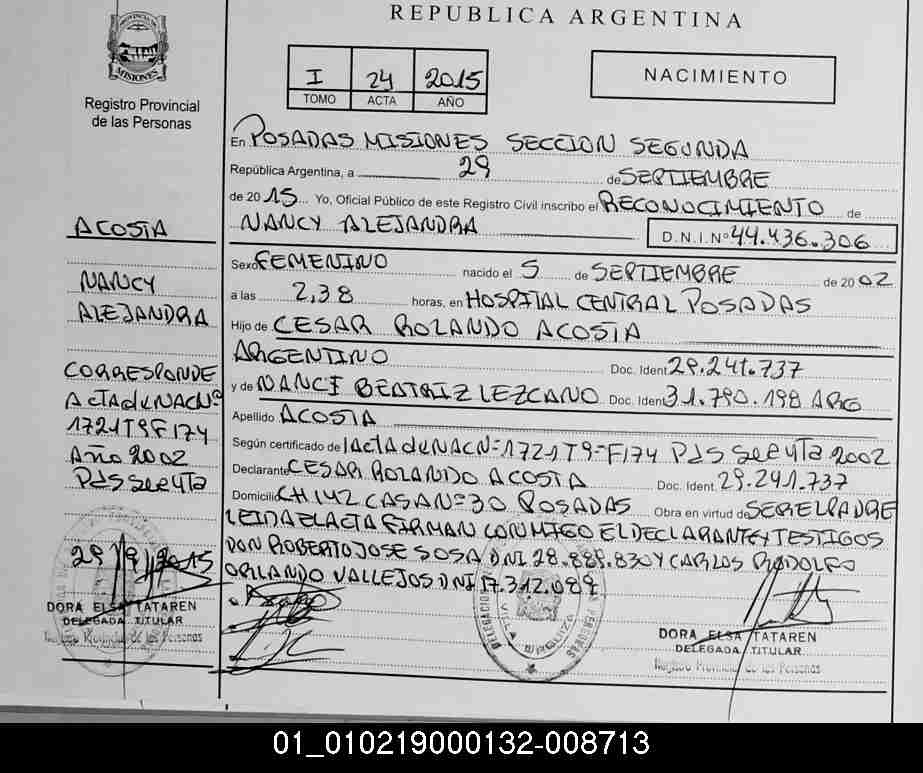 REPUBLICA ARGENTINA
PROVINCIA DE
MISIONES
Registro Provincial
de las Personas
I 24 2015
TOMO ACTA AÑO
NACIMIENTO
En POSADAS MISIONES SECCION SEGUNDA
República Argentina, a 29 de SEPTIEMBRE
de 2015 Yo, Oficial Público de este Registro Civil inscribo el RECONOCIMIENTO de
NANCY ALEJANDRA D.N.I.Nº 44.436.306
Sexo FEMENINO nacido el 5 de SEPTIEMBRE de 2002
a las 2,38 horas, en HOSPITAL CENTRAL POSADAS
Hijo de CESAR ROLANDO ACOSTA
ARGENTINO Doc. Ident 29.241.737
y de NANCI BEATRIZ LEZCANO Doc. Ident 31.790.198 ARG
Apellido ACOSTA
Según certificado de ACTA de NAC Nº 1721 T9 F174 Pds 2002
Declarante CESAR ROLANDO ACOSTA Doc. Ident. 29.241.737
Domicilio CH 142 CASA Nº 30 POSADAS Obra en virtud de SER EL PADRE
LEIDA EL ACTA FIRMAN CONMIGO EL DECLARANTE Y TESTIGOS
DON ROBERTO JOSE SOSA DNI 28.889.830 Y CARLOS RODOLFO
ORLANDO VALLEJOS DNI 17.312.089
ACOSTA
NANCY
ALEJANDRA
CORRESPONDE
Acta de NAC Nº
1721 T9 F174
Año 2002
Pds
29/9/2015
DORA ELSA TATAREN
DELEGADA TITULAR
Registro Provincial de las Personas
DELEGACION
VILLA
DORA ELSA TATAREN
DELEGADA TITULAR
Registro Provincial de las Personas
01_010219000132-008713